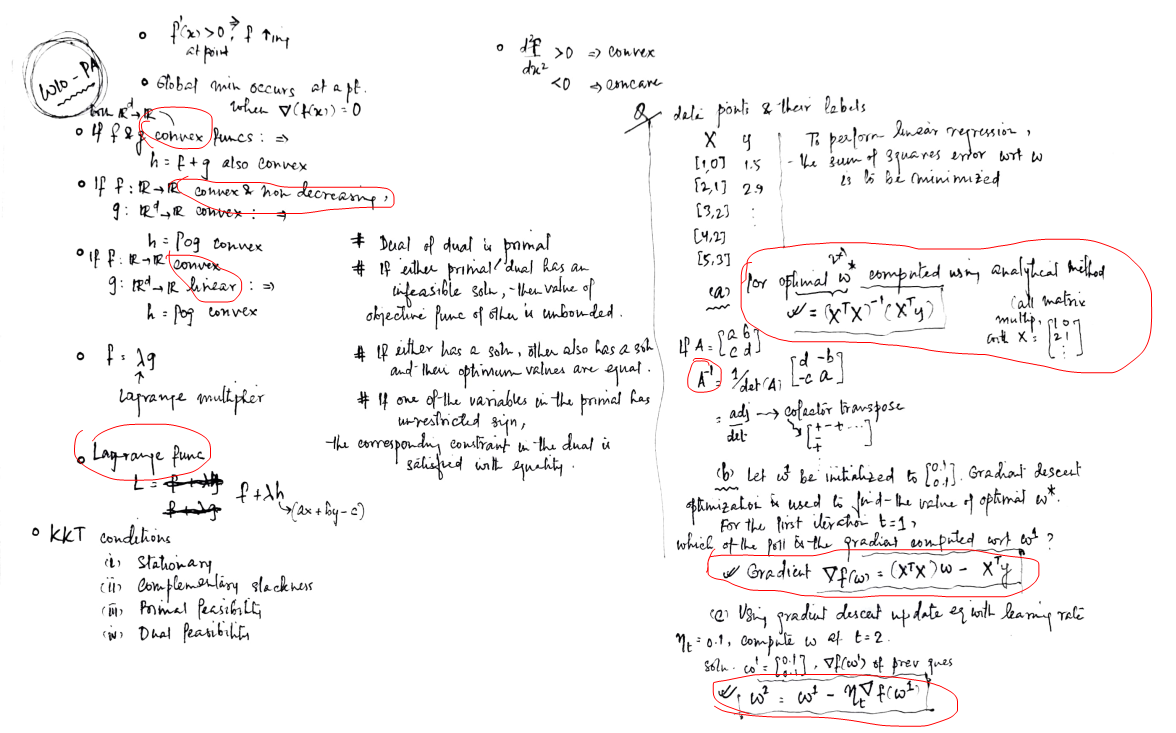 W10 - PA
∘ f'(x) > 0 ⇒ f ↑ing
at point
∘ Global min occurs at a pt.
when ∇(f(x)) = 0
both ℝᵈ→ℝ
∘ If f & g convex funcs : ⇒
h = f + g also convex
∘ If f : ℝ→ℝ convex & non decreasing,
g : ℝᵈ→ℝ convex : ⇒
h = fog convex
∘ If f : ℝ→ℝ convex
g : ℝᵈ→ℝ linear : ⇒
h = fog convex
∘ f = λg
↑
Lagrange multiplier
∘ Lagrange func
L = f + λg f + λh
f + λg →(ax + by - c)
∘ KKT conditions
(i) Stationary
(ii) Complementary slackness
(iii) Primal feasibility
(iv) Dual feasibility
# Dual of dual is primal
# If either primal/dual has an
infeasible soln, then value of
objective func of other is unbounded.
# If either has a soln, other also has a soln
and their optimum values are equal.
# If one of the variables in the primal has
unrestricted sign,
the corresponding constraint in the dual is
satisfied with equality.
∘ d²f/dx² > 0 ⇒ convex
< 0 ⇒ concave
Q data points & their labels
X y
[1,0] 1.5
[2,1] 2.9
[3,2] :
[4,2] :
[5,3]
To perform linear regression,
the sum of squares error wrt w
is to be minimized
(a) For optimal w* computed using analytical method
(2x1)
w = (XᵀX)⁻¹(Xᵀy)
(all matrix
multip.
with X = [1 0
2 1
:]
If A = [a b
c d]
A⁻¹ = 1/det(A) [d -b
-c a]
= adj/det → cofactor transpose
[+ - + ...
-
+ ]
(b) Let w¹ be initialized to [0.1
0.1]. Gradient descent
optimization is used to find the value of optimal w*.
For the first iteration t=1,
which of the foll is the gradient computed wrt w¹ ?
Gradient ∇f(w) = (XᵀX)w - Xᵀy
(c) Using gradient descent update eq with learning rate
ηₜ = 0.1, compute w at t=2.
soln. w¹ = [0.1
0.1], ∇f(w¹) of prev ques
w² = w¹ - ηₜ∇f(w¹)